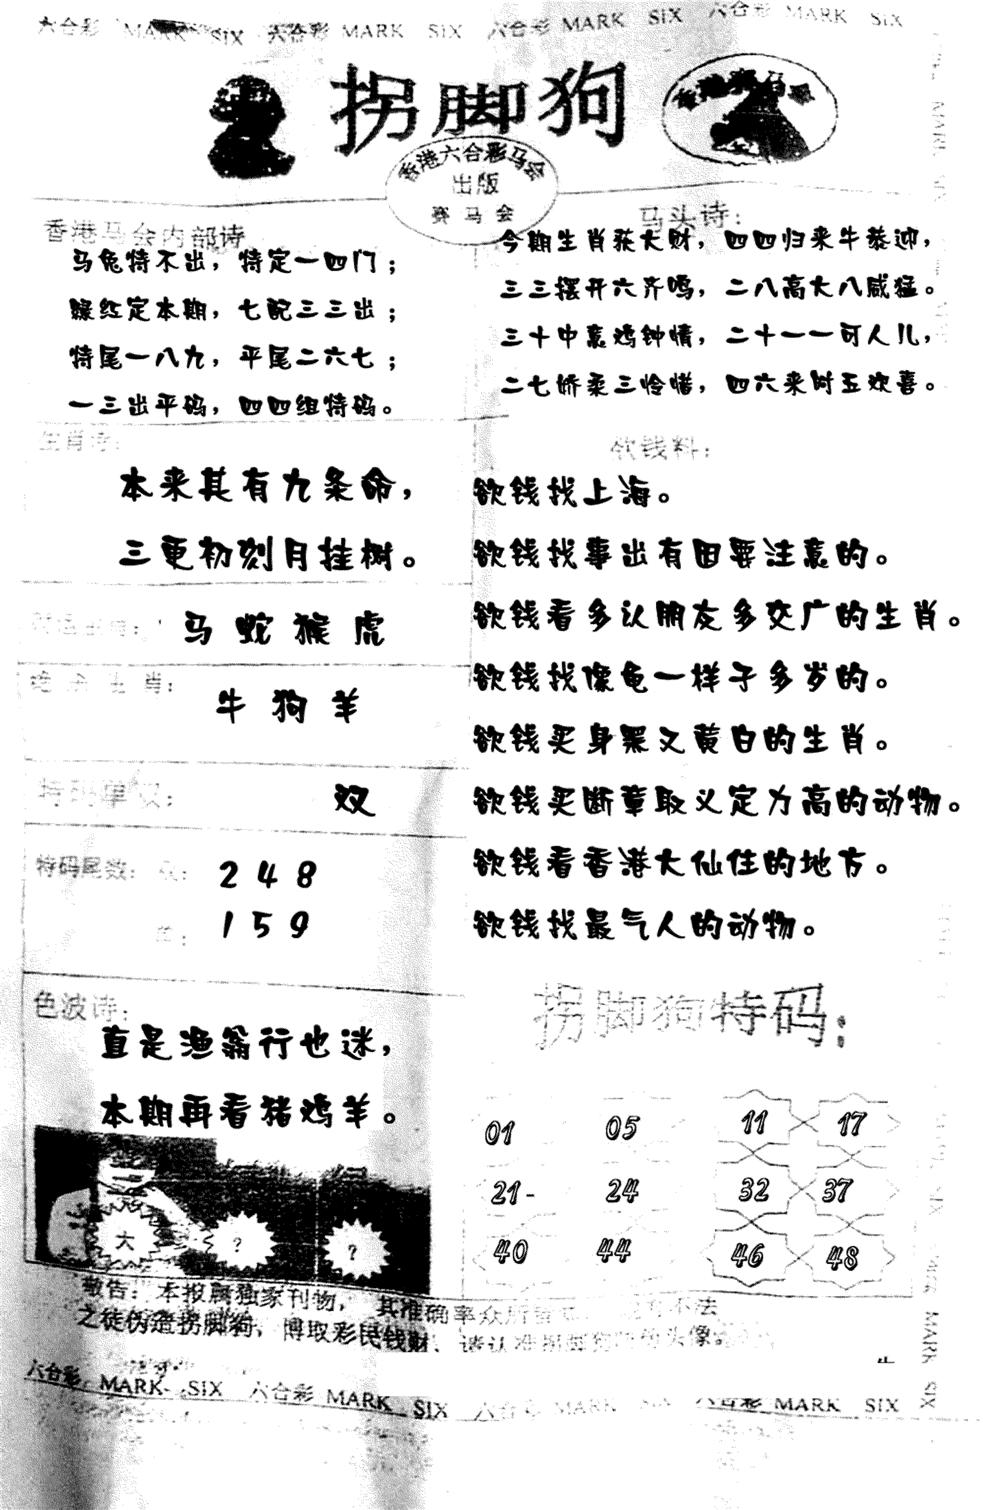 六合彩 MARK SIX 六合彩 MARK SIX 六合彩 MARK SIX 六合彩 MARK SIX
拐脚狗
香港赛马会
香港六合彩马会
出版
赛马会
香港马会内部诗
马兔特不出，特定一四门；
绿红定本期，七配三三出；
特尾一八九，平尾二六七；
一三出平码，四四组特码。
马头诗：
今期生肖获大财，四四归来牛恭迎，
三三摆开六齐鸣，二八高大八威猛。
三十中意鸡钟情，二十一一可人儿，
二七娇柔三怜惜，四六来时五欢喜。
生肖诗：
本来其有九条命，
三更初刻月挂树。
马 蛇 猴 虎
绝杀生肖：
牛 狗 羊
特码单双：
双
特码尾数：双：
2 4 8
单：
1 5 9
色波诗：
直是渔翁行也迷，
本期再看猪鸡羊。
大 ? ?
欲钱料：
欲钱找上海。
欲钱找事出有因要注意的。
欲钱看多认朋友多交广的生肖。
欲钱找像龟一样子多岁的。
欲钱买身黑又黄白的生肖。
欲钱买断章取义定力高的动物。
欲钱看香港大仙住的地方。
欲钱找最气人的动物。
拐脚狗特码：
01 05 11 17
21- 24 32 37
40 44 46 48
敬告：本报属独家刊物，其准确率众所
不法
之徒伪造拐脚狗，博取彩民钱财，请认准拐脚狗
头像
六合彩 MARK SIX 六合彩 MARK SIX 六合彩 MARK SIX 六合彩 MARK SIX
MARK SIX
MARK SIX